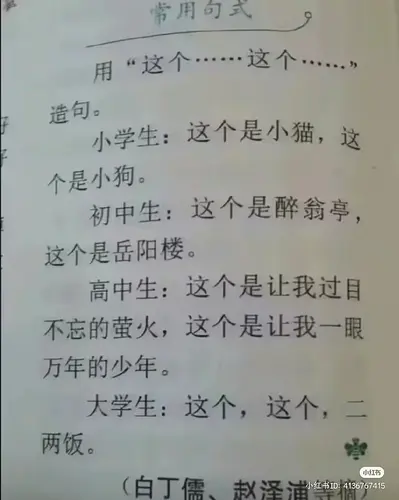 常用句式
用“这个……这个……”
造句。
小学生：这个是小猫，这
个是小狗。
初中生：这个是醉翁亭，
这个是岳阳楼。
高中生：这个是让我过目
不忘的萤火，这个是让我一眼
万年的少年。
大学生：这个，这个，二
两饭。
（白丁儒、赵泽浦
小红书
小红书ID: 4136767415